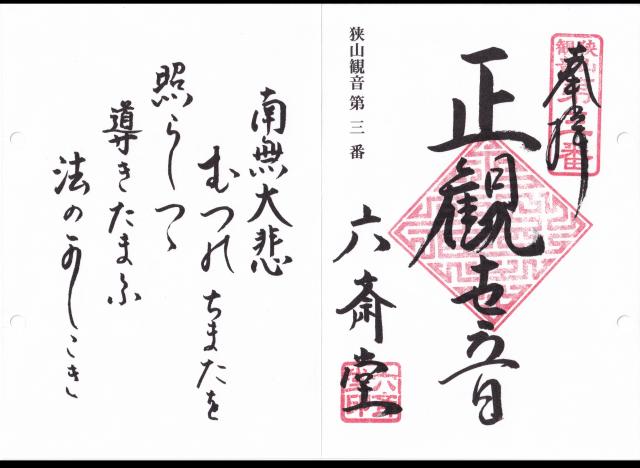 奉拝
狭山観音第三番
正観世音
狭山観音第三番
六斎堂
南無大悲
むつのちまたを
照らしつゝ
導きたまふ
法の可しこき